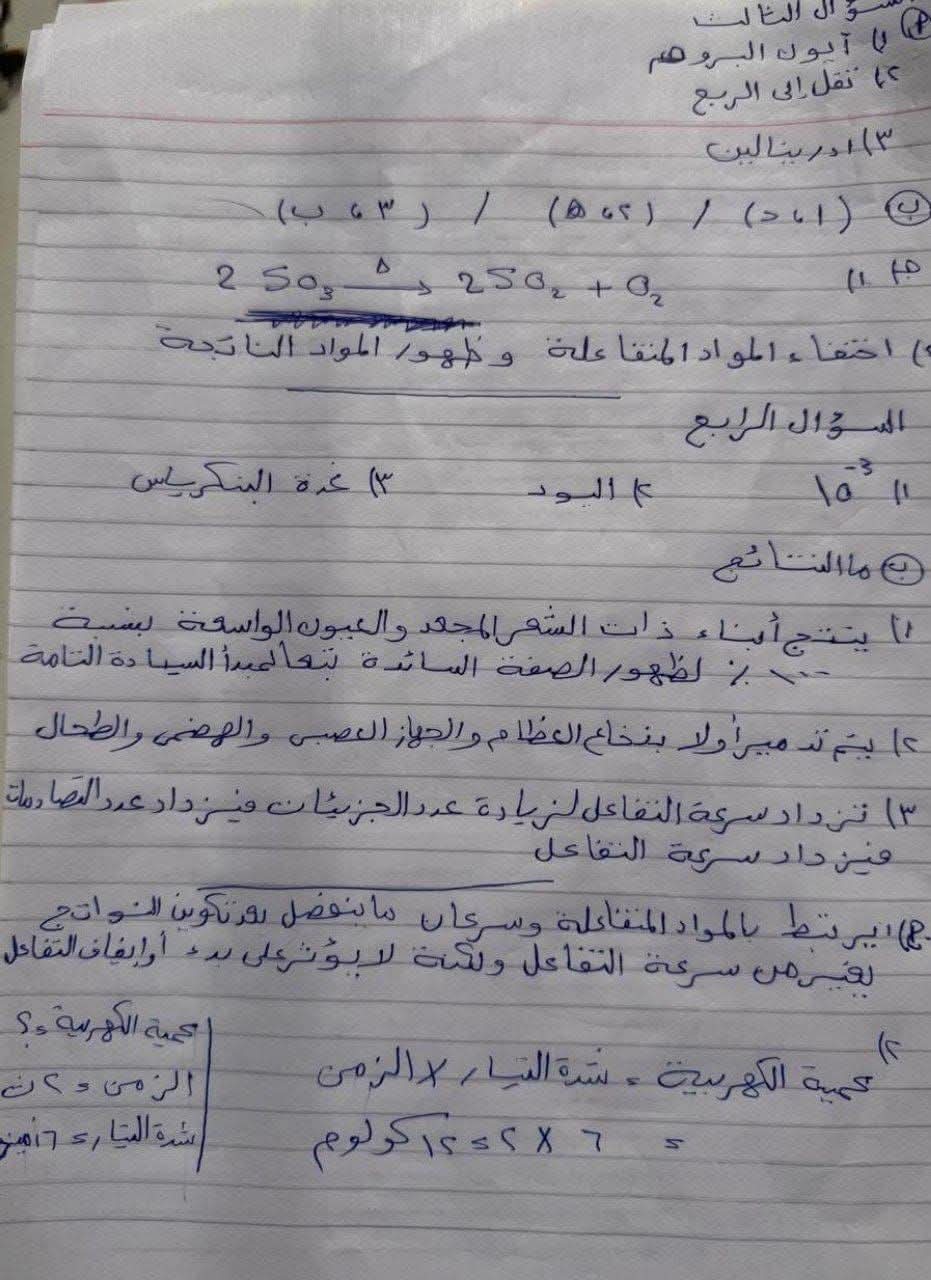 سؤال الثالث
(P)
١) آيون البروم
٢) تقل إلى الربع
٣) ادرينالين
(ب) (١، د) / (٢، ه) / (٣، ب)
ج) ١) 2 SO3 —Δ→ 2SO2 + O2
٢) اختفاء المواد المتفاعلة وظهور المواد الناتجة
السؤال الرابع
١) 10⁻³ ٢) اليود ٣) غدة البنكرياس
(ب) ما النتائج
١) ينتج أبناء ذات الشعر المجعد والعيون الواسعة بنسبة
١٠٠٪ لظهور الصفة السائدة تبعا لمبدأ السيادة التامة
٢) يتم تدمير أولا بنخاع العظام والجهاز العصبى والهضمى والطحال
٣) تزداد سرعة التفاعل لزيادة عدد الجزيئات فيزداد عدد التصادمات
فيزداد سرعة التفاعل
ج) ١) يرتبط بالمواد المتفاعلة وسرعان ما ينفصل بعد تكوين النواتج
يغير من سرعة التفاعل ولكنة لا يؤثر على بدء أو إيقاف التفاعل
٢) كمية الكهربية = شدة التيار × الزمن
= ٦ × ٢ = ١٢ كولوم
كمية الكهربية = ؟
الزمن = ٢ ث
شدة التيار = ٦ أمبير